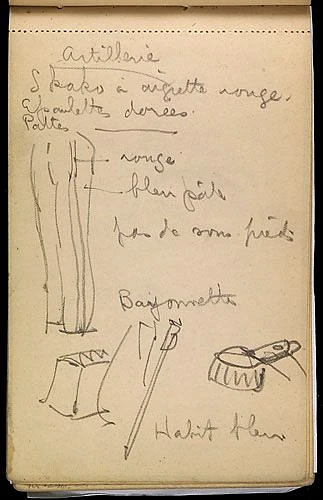 Artillerie
Skako à aigrette rouge.
Epaulettes dorées.
Pattes
rouge
bleu pâle
pas de sous pieds
Bayonnette
Habit bleu